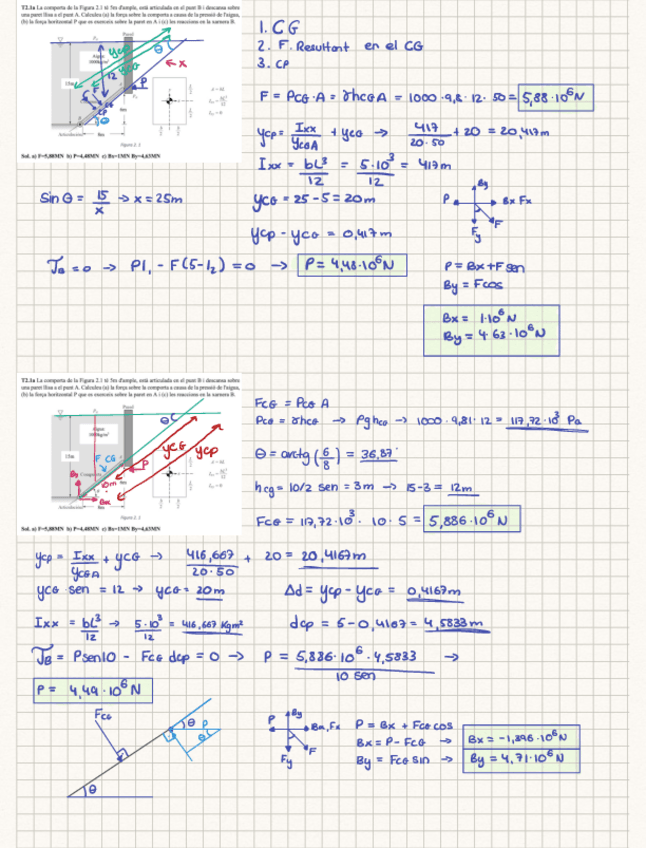 T2.1a La comporta de la Figura 2.1 té 5m d'ample, està articulada en el punt B i descansa sobre
una paret llisa a el punt A. Calculeu (a) la força sobre la comporta a causa de la pressió de l'aigua,
(b) la força horitzontal P que es exerceix sobre la paret en A i (c) les reaccions en la ruera B.
Paret
Aigua
15m
ycp
ycg
θ
12
P
x
F
CP
8m
Figura 2.1
Sol. a) F=5,88MN b) P=4,48MN c) Bx=1MN By=4,63MN
1. CG
2. F. Resultant en el CG
3. CP
F = PCG·A = γhCGA = 1000·9,8·12·50 = 5,88·10⁶N
ycp = Ixx / yCGA + yCG → 417 / 20·50 + 20 = 20,417m
Ixx = bL³ / 12 = 5·10³ / 12 = 417m
Sin θ = 15 / x → x = 25m
yCG = 25-5 = 20m
ycp - yCG = 0,417m
P By Bx Fx
Fy F
TB = 0 → Pl₁ - F(5-l₂) = 0 → P = 4,48·10⁶N
P = Bx + F sen
By = F cos
Bx = 1·10⁶ N
By = 4,63·10⁶N
T2.1a La comporta de la Figura 2.1 té 5m d'ample, està articulada en el punt B i descansa sobre
una paret llisa a el punt A. Calculeu (a) la força sobre la comporta a causa de la pressió de l'aigua,
(b) la força horitzontal P que es exerceix sobre la paret en A i (c) les reaccions en la ruera B.
Paret
Aigua
15m
θ
yCG
ycp
F CG
P
By
10m
Bx
8m
Figura 2.1
Sol. a) F=5,88MN b) P=4,48MN c) Bx=1MN By=4,63MN
FCG = PCG A
PCG = γhCG → ρghCG → 1000·9,81·12 = 117,72·10³ Pa
θ = arctg (6/8) = 36,87°
hcg = 10/2 sen = 3m → 15-3 = 12m
FCG = 117,72·10³ · 10·5 = 5,886·10⁶N
ycp = Ixx / yCGA + yCG → 416,667 / 20·50 + 20 = 20,4167m
yCG sen = 12 → yCG = 20m
Δd = ycp - yCG = 0,4167m
Ixx = bL³ / 12 → 5·10³ / 12 = 416,667 Kgm²
dcp = 5 - 0,4167 = 4,5833m
TB = P sen 10 - FCG dcp = 0 → P = 5,886·10⁶·4,5833 / 10 sen →
P = 4,49·10⁶N
FCG
θ P
θ
θ
P By Bx, Fx
Fy F
P = Bx + FCG cos
Bx = P - FCG → Bx = -1,396·10⁶N
By = FCG sin → By = 4,71·10⁶N